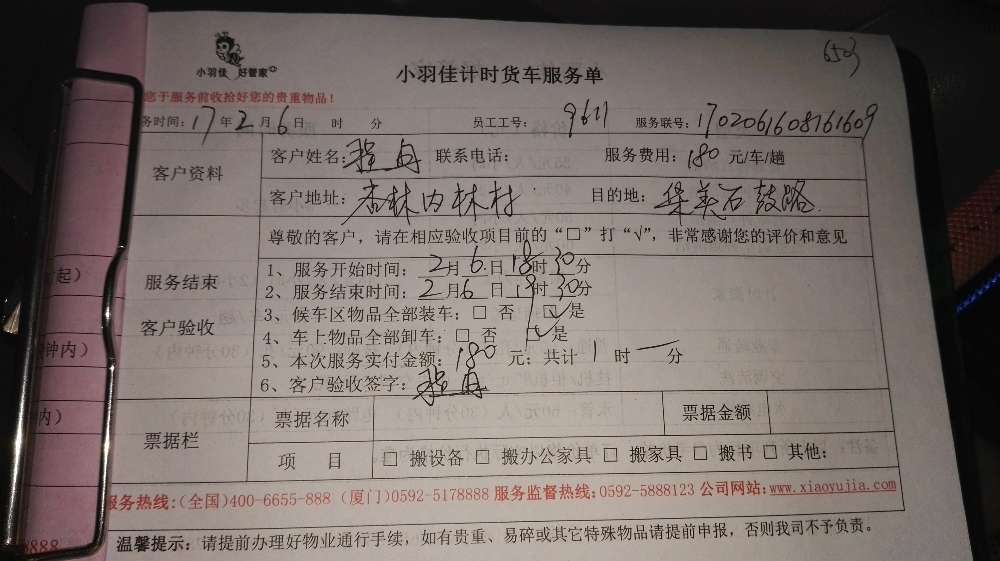 6503
小羽佳 好管家
小羽佳计时货车服务单
您于服务前收拾好您的贵重物品！
务时间：17年2月6日 时 分 员工工号： 9611 服务联号：1702061608161609
客户资料
客户姓名：程丹 联系电话： 服务费用：180 元/车/趟
客户地址：杏林内林村 目的地：集美石鼓路
尊敬的客户，请在相应验收项目前的“□”打“√”，非常感谢您的评价和意见
服务结束
客户验收
1、服务开始时间：2月6日18时30分
2、服务结束时间：2月6日19时30分
3、候车区物品全部装车：□ 否 ☑ 是
4、车上物品全部卸车：□ 否 ☑ 是
5、本次服务实付金额：180 元；共计 1 时 一 分
6、客户验收签字：程丹
票据栏
票据名称 票据金额
项 目 □ 搬设备 □ 搬办公家具 □ 搬家具 □ 搬书 □ 其他：
服务热线：(全国)400-6655-888 (厦门)0592-5178888 服务监督热线：0592-5888123 公司网站：www.xiaoyujia.com
温馨提示：请提前办理好物业通行手续，如有贵重、易碎或其它特殊物品请提前申报，否则我司不予负责。
起）
钟内）
内）
8888